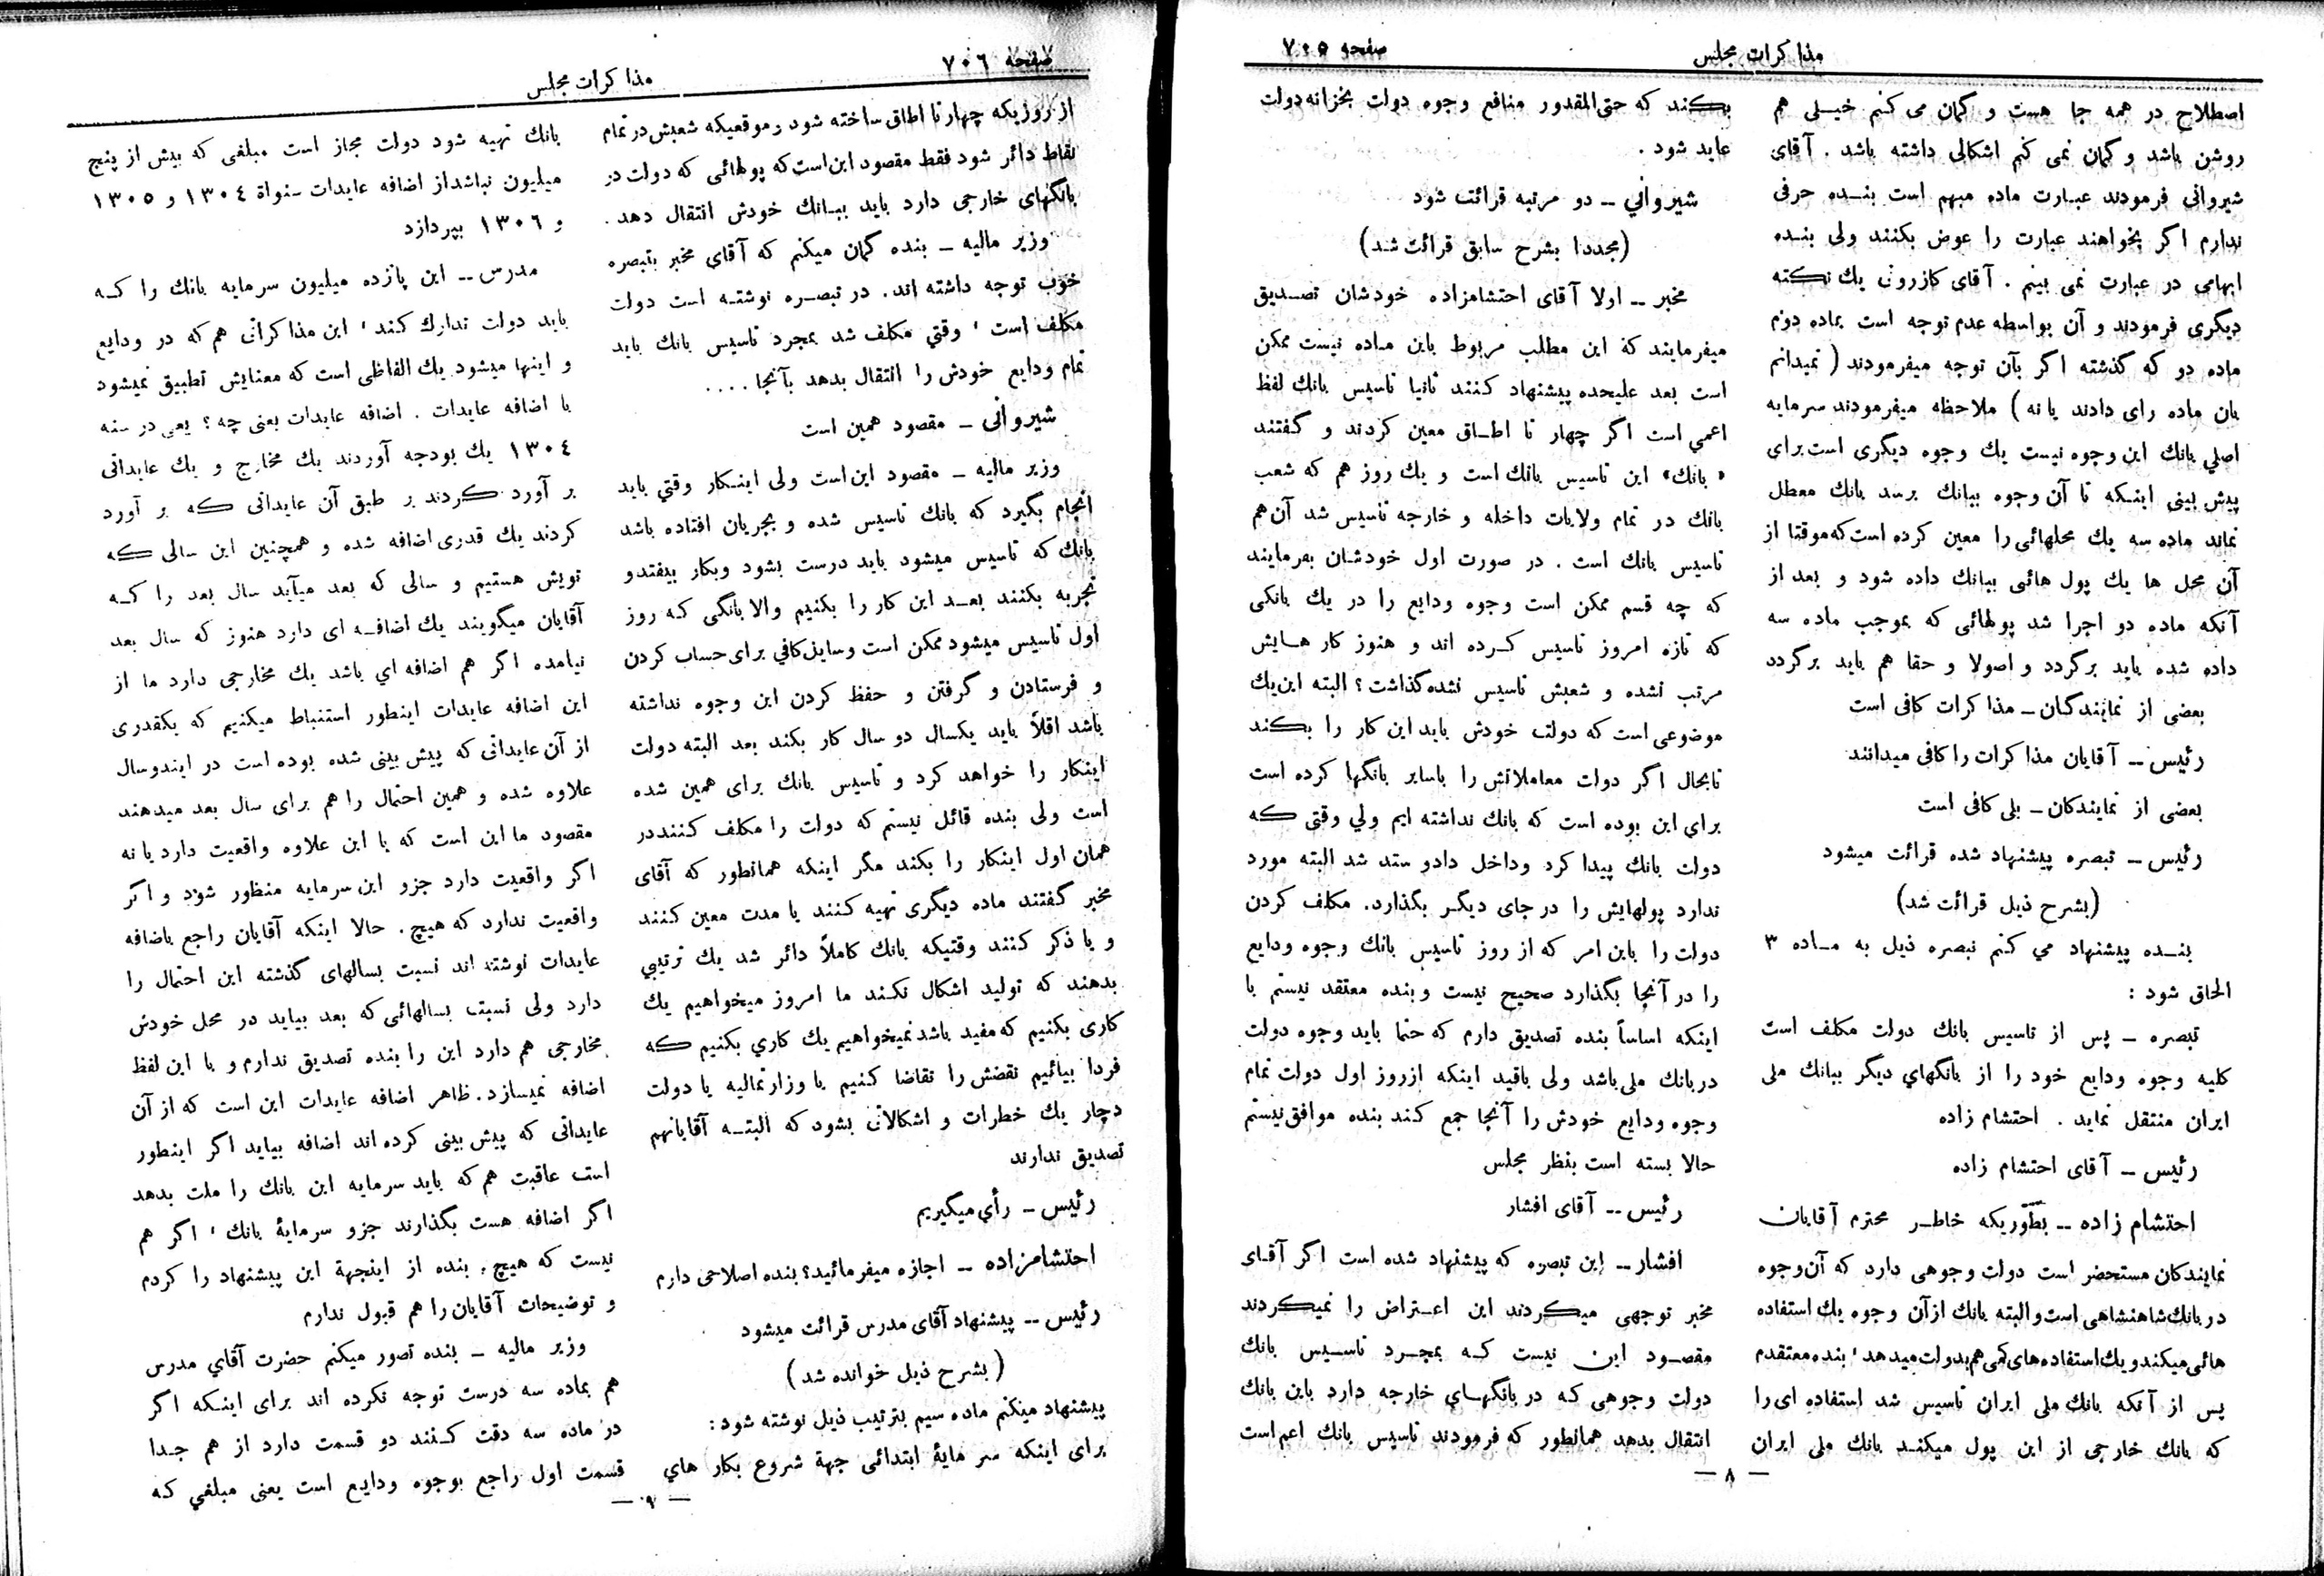 مذاکرات مجلس
صفحه ۷۰۵
اصطلاح در همه جا هست و گمان می کنم خیلی هم
روشن باشد و گمان نمی کنم اشکالی داشته باشد . آقای
شیروانی فرمودند عبارت ماده مبهم است بنده حرفی
ندارم اگر بخواهند عبارت را عوض بکنند ولی بنده
ابهامی در عبارت نمی بینم . آقای کازرونی یك نکته
دیگری فرمودند و آن بواسطه عدم توجه است بماده دوم
ماده دو که گذشته اگر بآن توجه میفرمودند ( نمیدانم
بان ماده رای دادند یا نه ) ملاحظه میفرمودند سرمایه
اصلي بانك این وجوه نیست یك وجوه دیگری است برای
پیش بینی اینکه تا آن وجوه ببانك برسد بانك معطل
نماند ماده سه یك محلهائی را معین کرده است که موقتا از
آن محل ها یك پول هائی ببانك داده شود و بعد از
آنکه ماده دو اجرا شد پولهائی که بموجب ماده سه
داده شده باید برگردد و اصولا و حقا هم باید برگردد
بعضی از نمایندگان ـ مذاکرات کافی است
رئیس ــ آقایان مذاکرات را کافی میدانند
بعضی از نمایندکان ـ بلی کافی است
رئیس ـ تبصره پیشنهاد شده قرائت میشود
(بشرح ذیل قرائت شد)
بنده پیشنهاد می کنم تبصره ذیل به ماده ۳
الحاق شود :
تبصره ـ پس از تاسیس بانك دولت مکلف است
کلیه وجوه ودایع خود را از بانگهاي دیگر ببانك ملی
ایران منتقل نماید . احتشام زاده
رئیس ـ آقای احتشام زاده
احتشام زاده ــ بطوریکه خاطر محترم آقایان
نمایندکان مستحضر است دولت وجوهی دارد که آن وجوه
در بانك شاهنشاهی است و البته بانك از آن وجوه یك استفاده
هائی میکند و یك استفاده های کمی هم بدولت میدهد ٬ بنده معتقدم
پس از آنکه بانك ملی ایران تاسیس شد استفاده ای را
که بانك خارجی از این پول میکند بانك ملی ایران
بکند که حتی المقدور منافع وجوه دولت بخزانه دولت
عاید شود .
شیرواني ــ دو مرتبه قرائت شود
(مجددا بشرح سابق قرائت شد)
مخبر ــ اولا آقای احتشامزاده خودشان تصدیق
میفرمایند که این مطلب مربوط باین ماده نیست ممکن
است بعد علیحده پیشنهاد کنند ثانیا تاسیس بانك لفظ
اعمي است اگر چهار تا اطاق معین کردند و گفتند
« بانك» این تاسیس بانك است و یك روز هم که شعب
بانك در تمام ولایات داخله و خارجه تاسیس شد آن هم
تاسیس بانك است . در صورت اول خودشان بفرمایند
که چه قسم ممکن است وجوه ودایع را در یك بانکی
که تازه امروز تاسیس کرده اند و هنوز کار هایش
مرتب نشده و شعبش تاسیس نشده گذاشت ؟ البته این یك
موضوعی است که دولت خودش باید این کار را بکند
تابحال اگر دولت معاملاتش را باسایر بانگها کرده است
براي این بوده است که بانك نداشته ایم ولي وقتی که
دولت بانك پیدا کرد وداخل دادو ستد شد البته مورد
ندارد پولهایش را در جای دیگر بگذارد. مکلف کردن
دولت را باین امر که از روز تاسیس بانك وجوه ودایع
را در آنجا بگذارد صحیح نیست و بنده معتقد نیستم با
اینکه اساساً بنده تصدیق دارم که حتما باید وجوه دولت
در بانك ملی باشد ولی باقید اینکه ازروز اول دولت تمام
وجوه ودایع خودش را آنجا جمع کند بنده موافق نیستم
حالا بسته است بنظر مجلس
رئیس ــ آقای افشار
افشار ــ این تبصره که پیشنهاد شده است اگر آقای
مخبر توجهی میکردند این اعتراض را نمیکردند
مقصود این نیست که بمجرد تاسیس بانك
دولت وجوهی که در بانگهای خارجه دارد باین بانك
انتقال بدهد همانطور که فرمودند تاسیس بانك اعم است
— ۸ —
صفحه ۷۰۶
مذاکرات مجلس
از روزیکه چهارتا اطاق ساخته شود و موقعیکه شعبش در تمام
نقاط دائر شود فقط مقصود این است که پولهائی که دولت در
بانگهای خارجی دارد باید ببانك خودش انتقال دهد .
وزیر مالیه ـ بنده گمان میکنم که آقای مخبر بتبصره
خوب توجه داشته اند. در تبصره نوشته است دولت
مکلف است ٬ وقتي مکلف شد بمجرد تاسیس بانك باید
تمام ودایع خودش را انتقال بدهد بآنجا ....
شیروانی ـ مقصود همین است
وزیر مالیه ـ مقصود این است ولی اینکار وقتي باید
انجام بگیرد که بانك تاسیس شده و بجریان افتاده باشد
بانك که تاسیس میشود باید درست بشود وبکار بیفتدو
تجربه بکنند بعد این کار را بکنیم والا بانگی که روز
اول تاسیس میشود ممکن است وسایل کافي برای حساب کردن
و فرستادن و گرفتن و حفظ کردن این وجوه نداشته
باشد اقلاً باید یکسال دو سال کار بکند بعد البته دولت
اینکار را خواهد کرد و تاسیس بانك برای همین شده
است ولی بنده قائل نیستم که دولت را مکلف کنند در
همان اول اینکار را بکند مگر اینکه همانطور که آقای
مخبر گفتند ماده دیگری تهیه کنند یا مدت معین کنند
و یا ذکر کنند وقتیکه بانك کاملاً دائر شد یك ترتیبي
بدهند که تولید اشکال نکند ما امروز میخواهیم یك
کاری بکنیم که مفید باشد نمیخواهیم یك کاري بکنیم که
فردا بیائیم نقضش را تقاضا کنیم یا وزارتمالیه یا دولت
دچار یك خطرات و اشکالاتی بشود که البته آقایانهم
تصدیق ندارند
رئیس ـ رأي میگیریم
احتشامزاده ــ اجازه میفرمائید؟ بنده اصلاحی دارم
رئیس ــ پیشنهاد آقای مدرس قرائت میشود
( بشرح ذیل خوانده شد )
پیشنهاد میکنم ماده سیم بترتیب ذیل نوشته شود:
برای اینکه سر مایهٔ ابتدائی جهة شروع بکار های
بانك تهیه شود دولت مجاز است مبلغی که بیش از پنج
میلیون نباشداز اضافه عایدات سنواة ۱۳۰۴ و ۱۳۰۵
و ۱۳۰۶ بپردازد
مدرس ــ این پازده میلیون سرمایه بانك را که
باید دولت تدارك کند ٬ این مذاکراتی هم که در ودایع
و اینها میشود یك الفاظی است که معنایش تطبیق نمیشود
با اضافه عایدات . اضافه عایدات یعنی چه ؟ یعی در سنه
۱۳۰۴ یك بودجه آوردند یك مخارج و یك عایداتی
بر آورد کردند بر طبق آن عایداتی که بر آورد
کردند یك قدری اضافه شده و همچنین این سالی که
تویش هستیم و سالی که بعد میآید سال بعد را که
آقایان میگویند یك اضافه ای دارد هنوز که سال بعد
نیامده اگر هم اضافه اي باشد یك مخارجی دارد ما از
این اضافه عایدات اینطور استنباط میکنیم که یکقدری
از آن عایداتی که پیش بینی شده بوده است در ایندوسال
علاوه شده و همین احتمال را هم برای سال بعد میدهند
مقصود ما این است که با این علاوه واقعیت دارد یا نه
اگر واقعیت دارد جزو این سرمایه منظور شود و اگر
واقعیت ندارد که هیچ . حالا اینکه آقایان راجع باضافه
عایدات نوشته اند نسبت بسالهای گذشته این احتمال را
دارد ولی نسبت بسالهائی که بعد بیاید در محل خودش
مخارجی هم دارد این را بنده تصدیق ندارم و با این لفظ
اضافه نمیسازد . ظاهر اضافه عایدات این است که از آن
عایداتی که پیش بینی کرده اند اضافه بیاید اگر اینطور
است عاقبت هم که باید سرمایه این بانك را ملت بدهد
اگر اضافه هست بگذارند جزو سرمایهٔ بانك ٬ اگر هم
نیست که هیچ . بنده از اینجهة این پیشنهاد را کردم
و توضیحات آقایان را هم قبول ندارم
وزیر مالیه ـ بنده تصور میکنم حضرت آقاي مدرس
هم بماده سه درست توجه نکرده اند برای اینکه اگر
در ماده سه دقت کنند دو قسمت دارد از هم جدا
قسمت اول راجع بوجوه ودایع است یعنی مبلغي که
— ۹ —